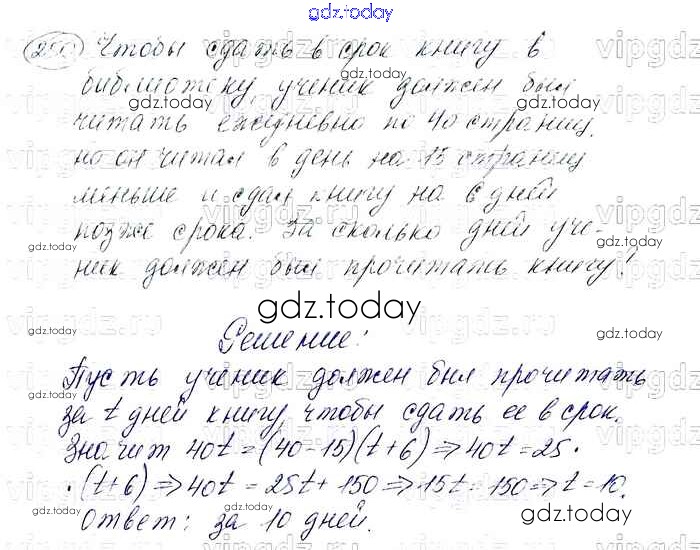 gdz.today
250 Чтобы сдать в срок книгу в
библиотеку, ученик должен был
читать ежедневно по 40 страниц,
но он читал в день на 15 страниц
меньше и сдал книгу на 6 дней
позже срока. За сколько дней уче-
ник должен был прочитать книгу?
gdz.today
Решение:
Пусть ученик должен был прочитать
за t дней книгу, чтобы сдать ее в срок.
Значит 40t = (40-15)(t+6) ⇒ 40t = 25 ·
· (t+6) ⇒ 40t = 25t + 150 ⇒ 15t = 150 ⇒ t = 10.
Ответ: за 10 дней.
gdz.today